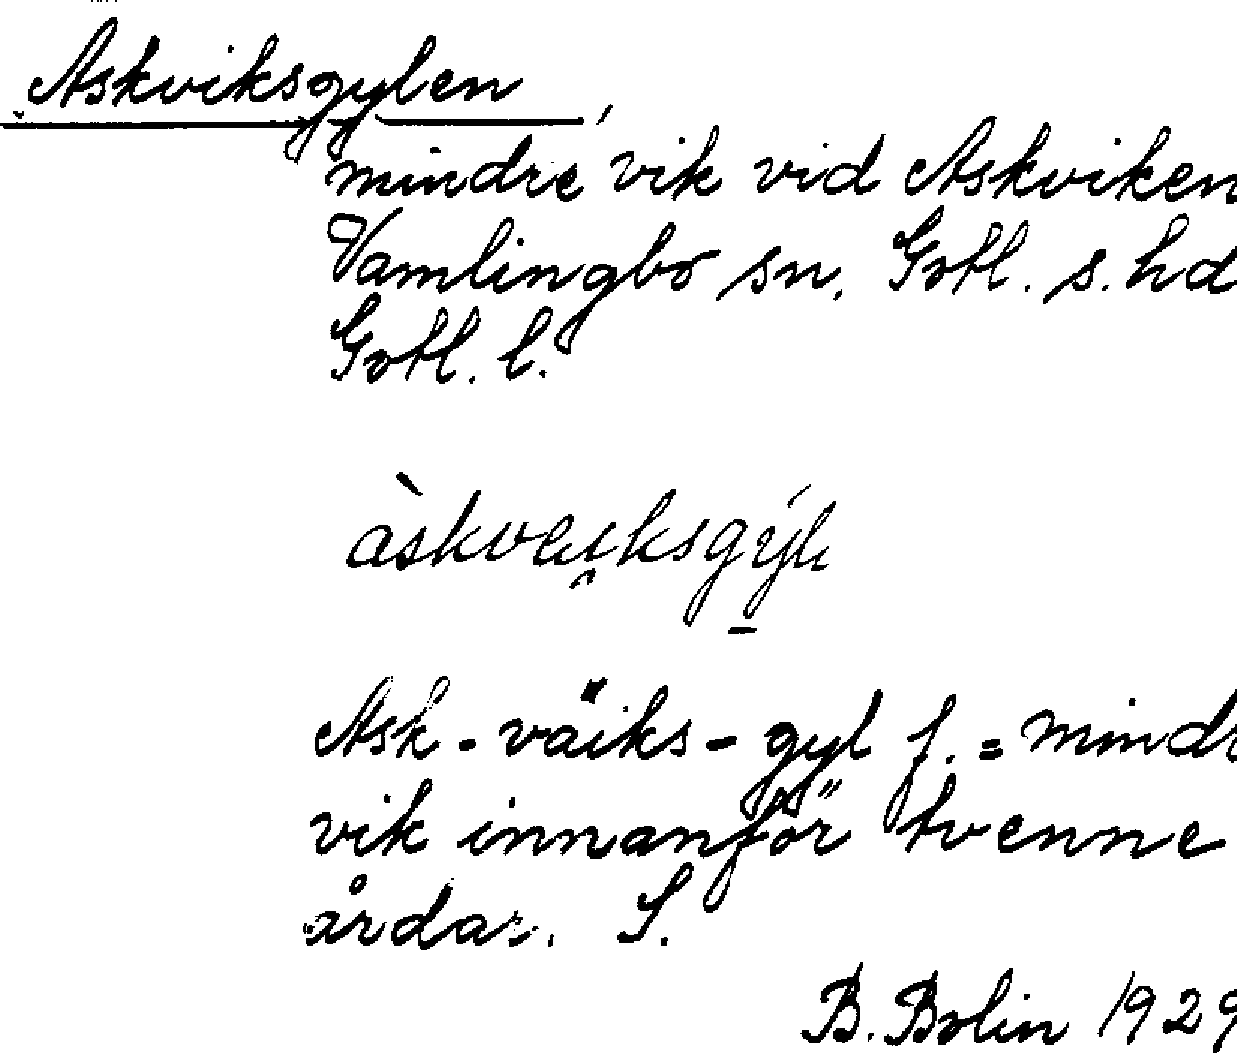 Askviksgylen,
mindre vik vid Askviken
Vamlingbo sn, Gotl. s. hd
Gotl. l.
Ask-väiks-gyl f. = mindr
vik innanför tvenne
årdar. S.
B. Bolin 1929